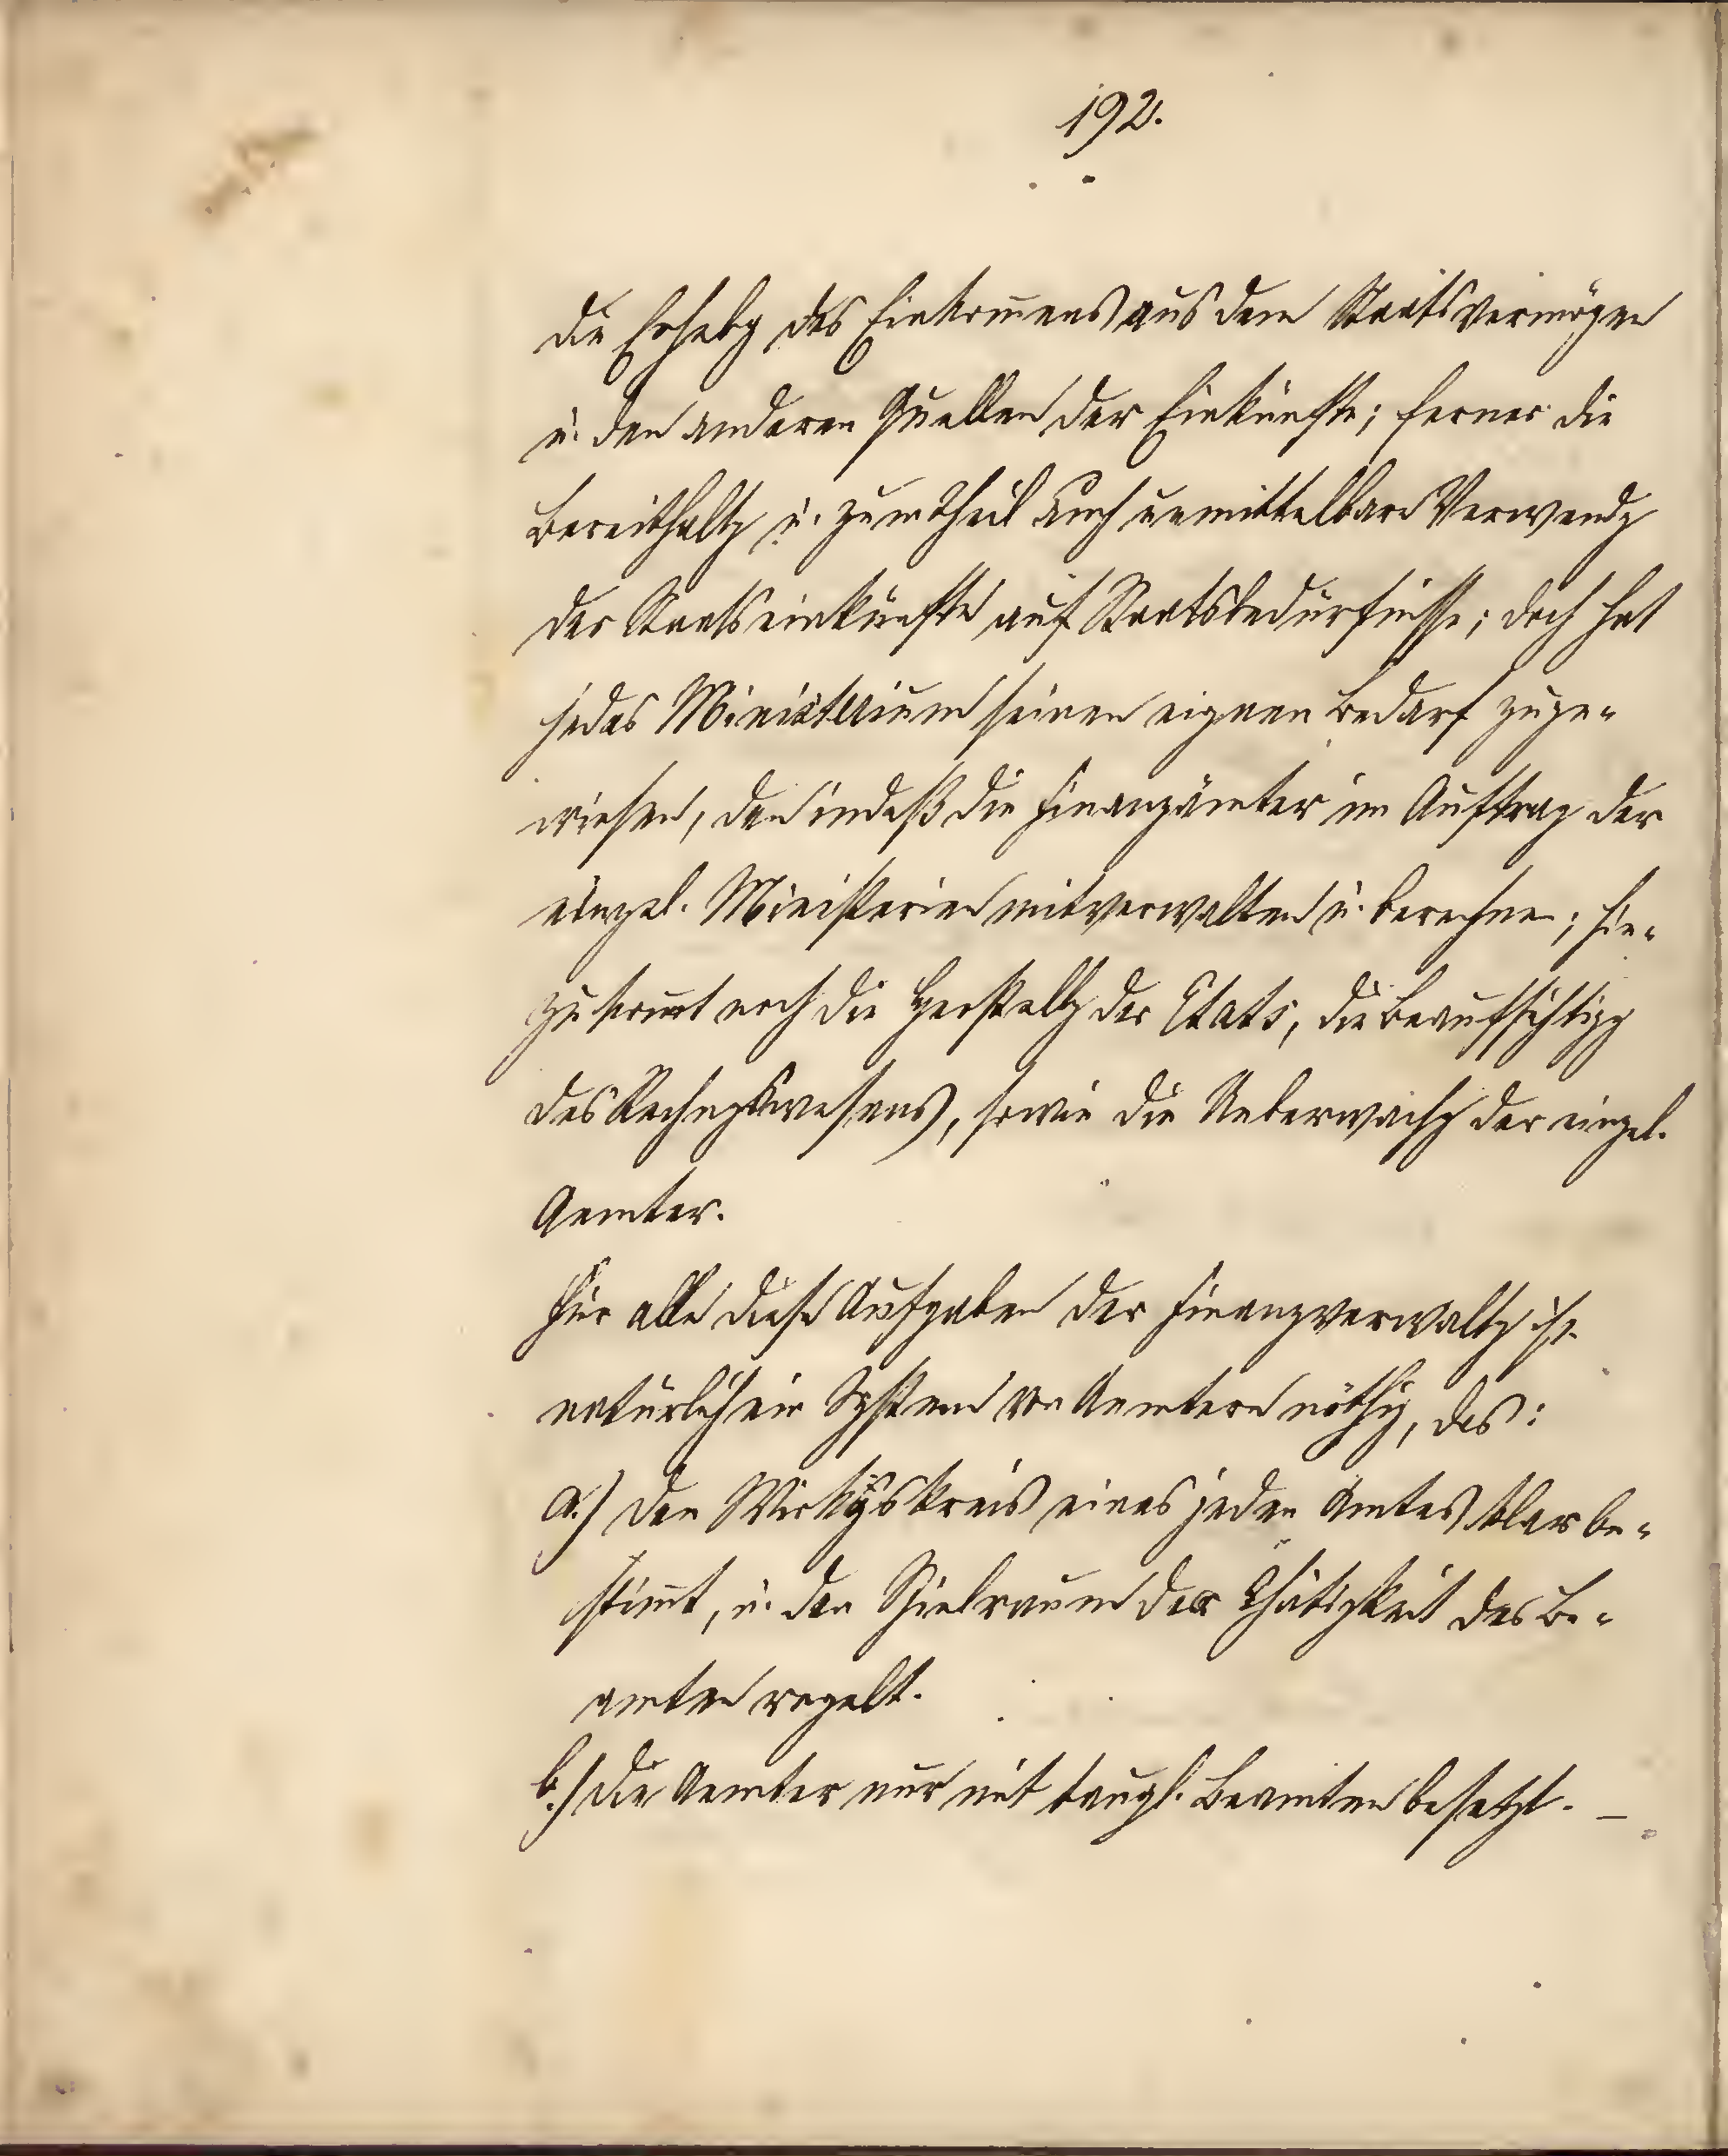 192.
die Erhebg des Einkom̄ens aus dem Staatsvermögen
u. den anderen Quellen der Einkünfte; ferner die
Bereithaltg u. zum Theil auch unmittelbare Verwendg
der Staatseinkünfte auf Staatsbedürfnisse; doch hat
jedes Ministerium seinen eignen Bedarf zuge-
wiesen, den indeß die Finanzämter im Auftrag der
einzel. Ministerien mitverwalten u. berechnen; hie-
zu kom̄t noch die Herstellg der Etats, die Beaufsichtigg
des Rechngswesens, sowie die Ueberwachg der einzel.
Aemter.
Für alle diese Aufgaben der Finanzverwaltg ist
natürlich ein System von Aemtern nöthig, das:
a.) den Wirkgskreis eines jeden Amtes klar be-
stim̄t, u. den Spielraum der Thätigkeit des Be-
amten regelt.
b.) die Aemter nur mit taugl. Beamten besetzt. —